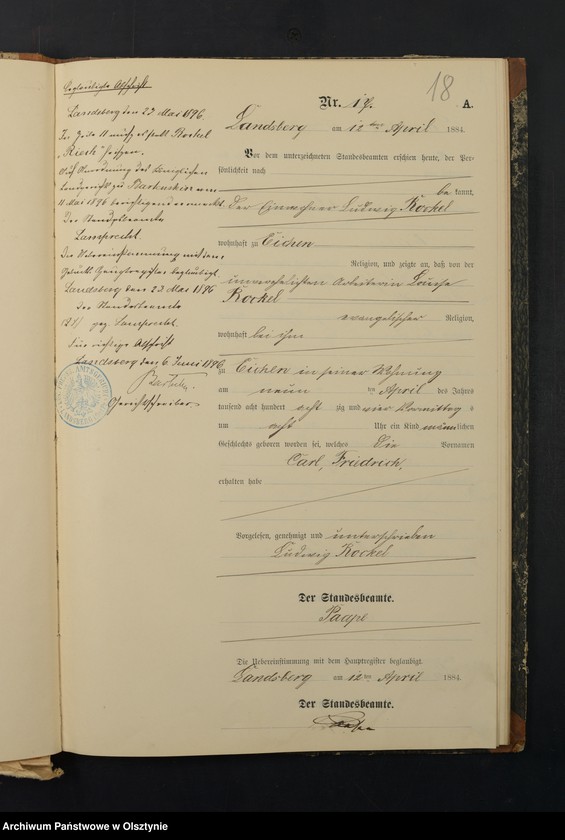 Beglaubigte Abschrift.
Landsberg den 23 Mai 1896.
11 muß es statt Rockel
Riech heißen.
Auf Anordnung des Königlichen
Landgerichts zu Bartenstein vom
11 Mai 1896 berichtigend vermerkt.
Der Standesbeamte
Lamprecht.
Die Uebereinstimmung mit dem
beglaubigt
Landsberg den 23 Mai 1896
Der Standesbeamte
gez. Lamprecht.
Für richtige Abschrift
Landsberg den 6 Juni 1896.
Gerichtsschreiber
18
Nr. 17. A.
Landsberg am 12 ten April 1884.
Vor dem unterzeichneten Standesbeamten erschien heute, der Per-
sönlichkeit nach
be kannt,
Der Einwohner Ludwig Rockel
wohnhaft zu Eichen
Religion, und zeigte an, daß von der
unverehelichten Arbeiterin Louise
Rockel
evangelischer Religion,
wohnhaft bei ihm
zu Eichen in seiner Wohnung
am neun ten April des Jahres
tausend acht hundert acht zig und vier Vormittag s
um acht Uhr ein Kind männlichen
Geschlechts geboren worden sei, welches die Vornamen
Carl, Friedrich,
erhalten habe
Vorgelesen, genehmigt und unterschrieben
Ludwig Rockel
Der Standesbeamte.
Paape
Die Uebereinstimmung mit dem Hauptregister beglaubigt.
Landsberg am 12 ten April 1884.
Der Standesbeamte.
Paape
Archiwum Państwowe w Olsztynie